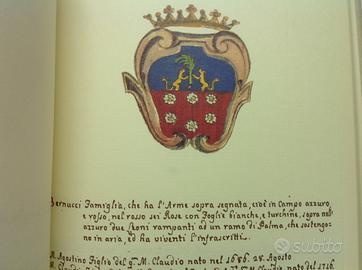 Bernucci Famiglia, che ha l'Arme sopra segnata, cioè in Campo azzuro,
e rosso, nel rosso sei Rose con Foglie bianche, e turchine, sopra nell'
azzuro due Leoni rampanti ad un ramo di Palma, che sostengo=
no in aria, ed ha viventi l'infrascritti.
M. Agostino Figlio del q. M. Claudio nato nel 1686. 28. Agosto
subito.it